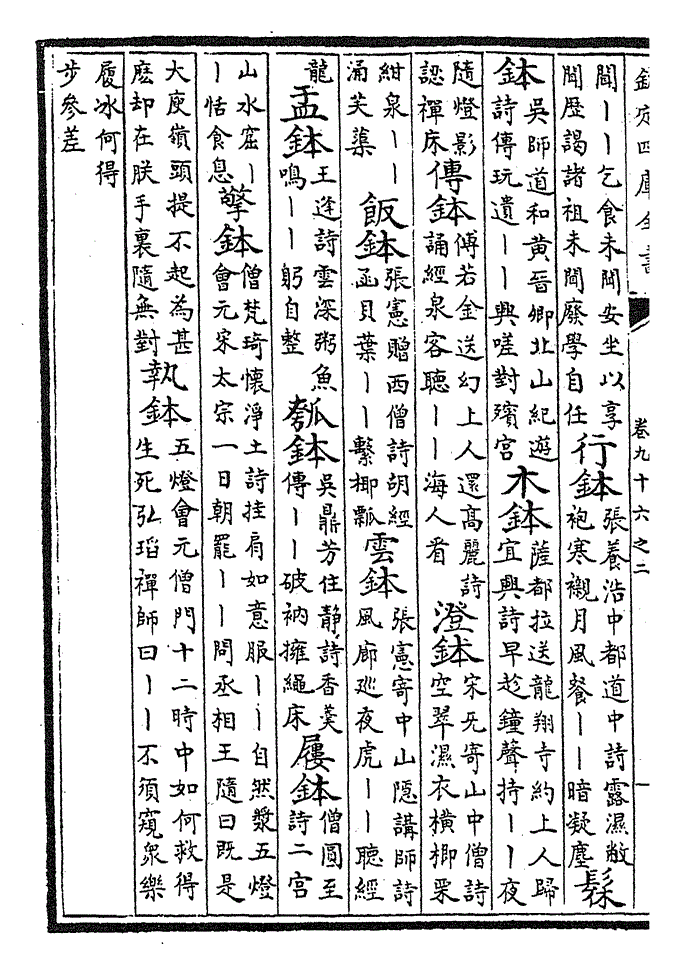 欽定四庫全書 卷九十六之二
聞丨丨乞食未聞安坐以享
聞歷謁諸祖未聞廢學自任
行鉢
張養浩中都道中詩露濕敝
袍寒襯月風餐丨丨暗凝塵
髹
鉢
吳師道和黃晉卿北山紀遊
詩傳玩遺丨丨興嗟對殯宫
木鉢
薩都拉送龍翔寺約上人歸
宜興詩早趁鐘聲持丨丨夜
隨燈影
認禪床
傳鉢
傅若金送幻上人還高麗詩
誦經泉客聽丨丨海人看
澄鉢
宋旡寄山中僧詩
空翠濕衣横榔栗
紺泉丨丨
涌芙蕖
飯鉢
張憲贈西僧詩胡經
函貝葉丨丨繫椰瓢
雲鉢
張憲寄中山隱講師詩
風廊巡夜虎丨丨聽經
龍
盂鉢
王逢詩雲深粥魚
鳴丨丨躬自整
瓠鉢
吳鼎芳住静詩香羹
傳丨丨破衲擁繩床
屨鉢
僧圓至
詩二宫
山水窟丨
丨恬食息
擎鉢
僧梵琦懷淨土詩挂肩如意服丨丨自然漿五燈
會元宋太宗一日朝罷丨丨問丞相王隨曰既是
大庾嶺頭提不起為甚
麽却在朕手裏隨無對
執鉢
五燈會元僧門十二時中如何救得
生死弘瑫禪師曰丨丨不須窺衆樂
履冰何得
步參差